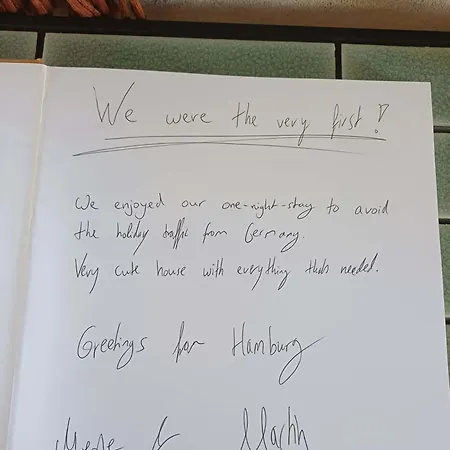 We were the very first!
We enjoyed our one-night-stay to avoid
the holiday traffic from Germany.
Very cute house with everything thats needed.
Greetings from Hamburg